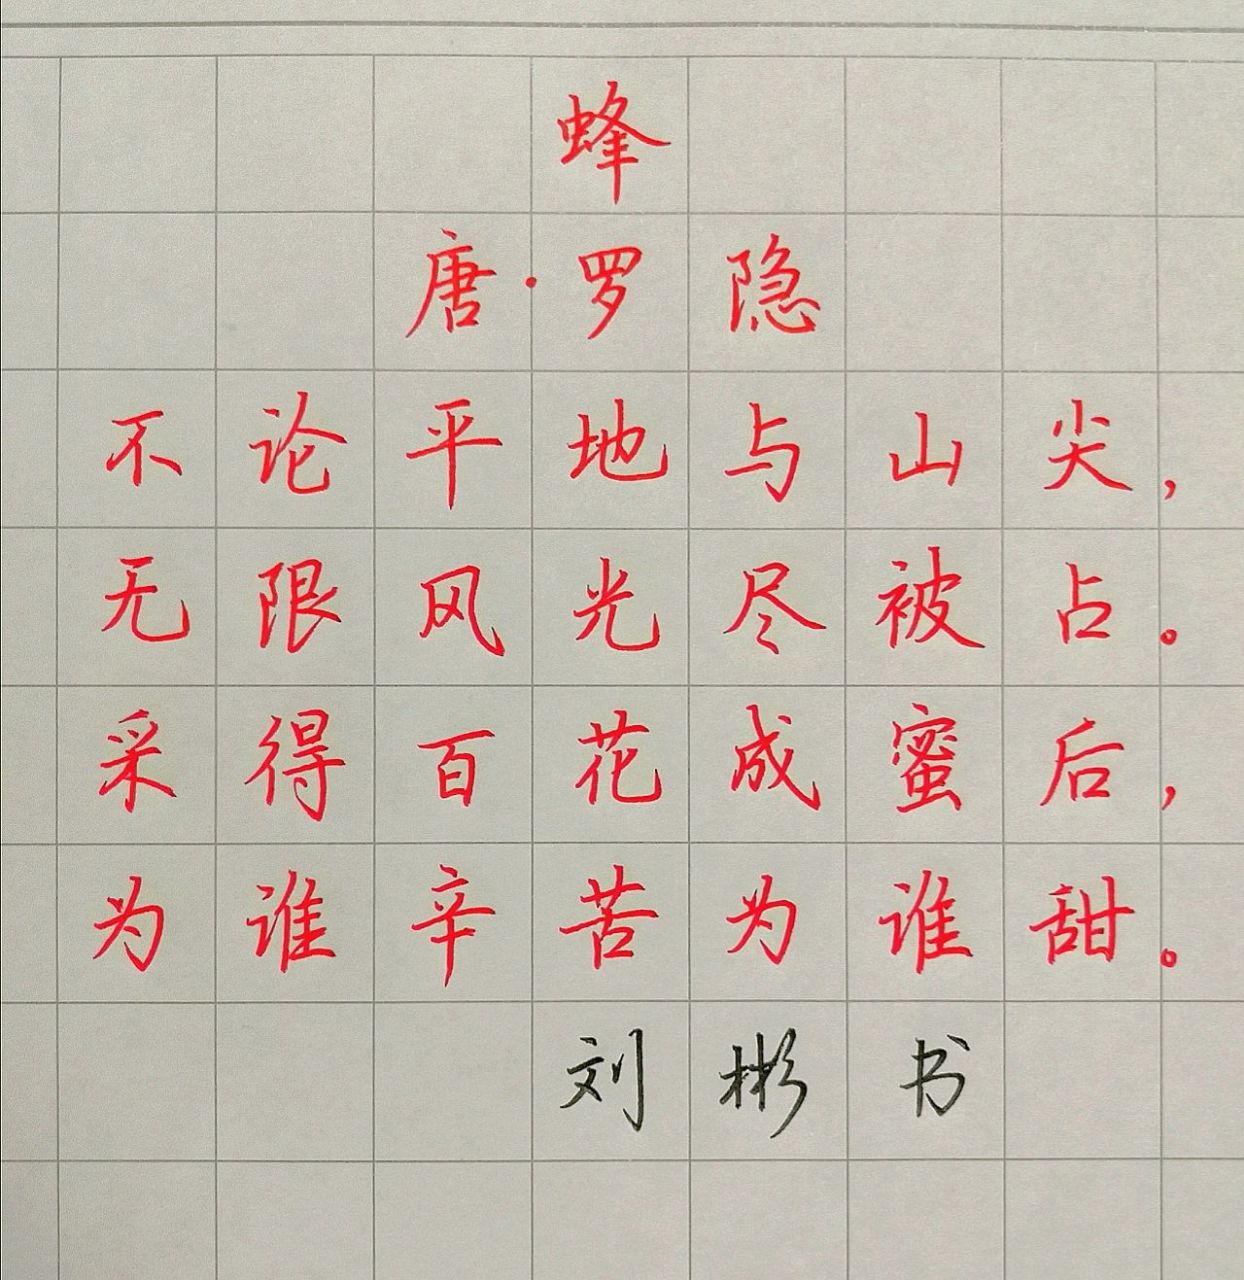 蜂
唐·罗隐
不论平地与山尖,
无限风光尽被占。
采得百花成蜜后,
为谁辛苦为谁甜。
刘彬书